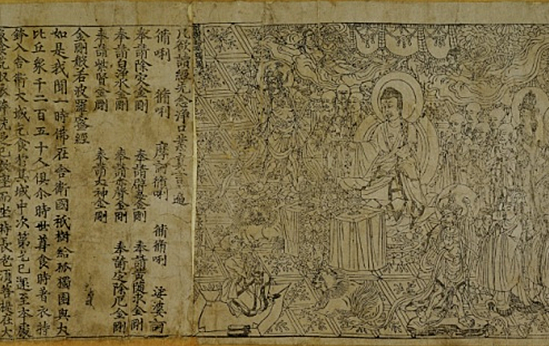 凡欲讀經先念淨口業真言一遍
脩唎 脩唎 摩訶脩唎 脩脩唎 娑婆訶
奉請除災金剛 奉請辟毒金剛 奉請黃隨求金剛
奉請白淨水金剛 奉請赤聲金剛 奉請定除厄金剛
奉請紫賢金剛 奉請大神金剛
金剛般若波羅蜜經
如是我聞一時佛在舍衛國祇樹給孤獨園與大
比丘衆千二百五十人俱尒時世尊食時著衣持
鉢入舍衛大城乞食於其城中次第乞已還至本處
飯食訖收衣鉢洗足已敷座而坐時長老須菩提在大